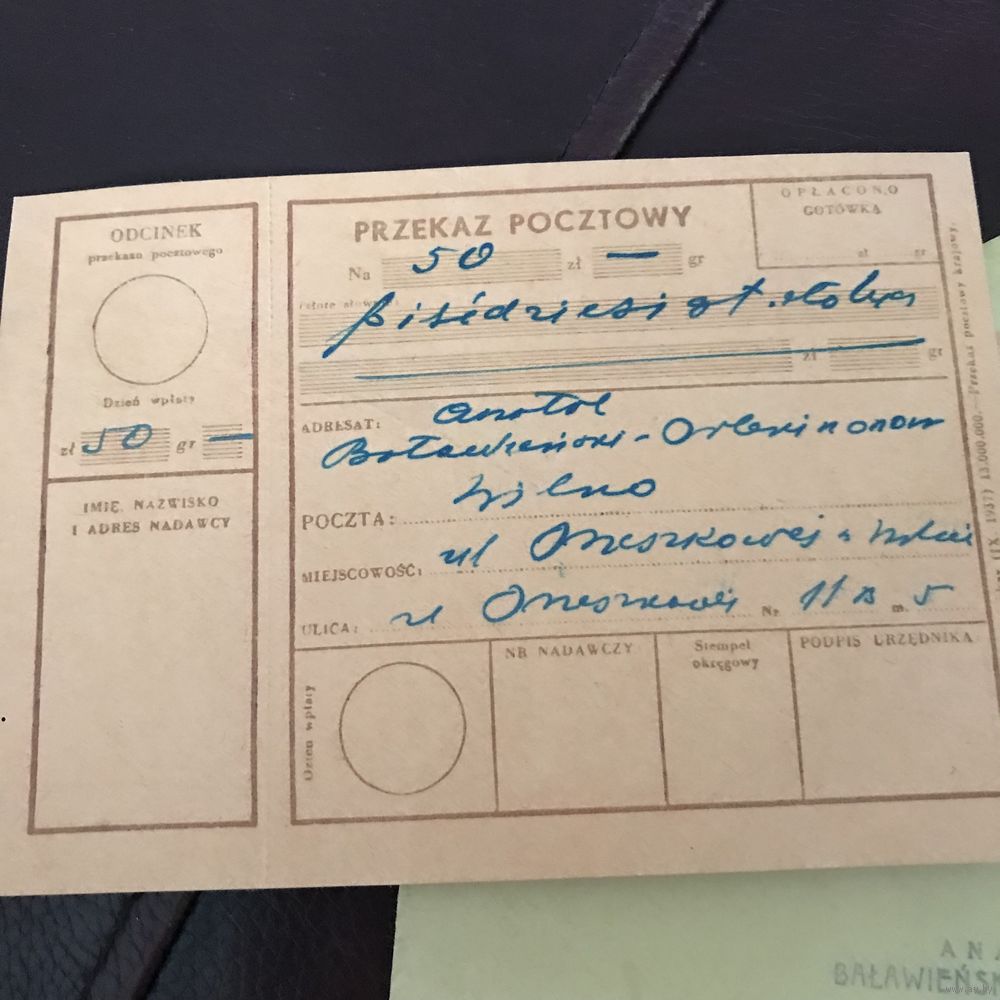 ODCINEK
przekazu pocztowego
Dzień wpłaty
zł 50 gr —
IMIĘ, NAZWISKO
I ADRES NADAWCY
PRZEKAZ POCZTOWY
OPŁACONO
GOTÓWKĄ
zł gr
Na 50 zł — gr
zł gr
ADRESAT: Anatol
POCZTA: Wilno
MIEJSCOWOŚĆ: ul Orzeszkowej
ULICA: ul Orzeszkowej Nr. 11 B m. 5
Dzień wpłaty
NR NADAWCZY
Stempel
okręgowy
PODPIS URZĘDNIKA
(IX 1937) 13.000.000. — Przekaz pocztowy krajowy.
ANA
BAŁAWIEŃSK